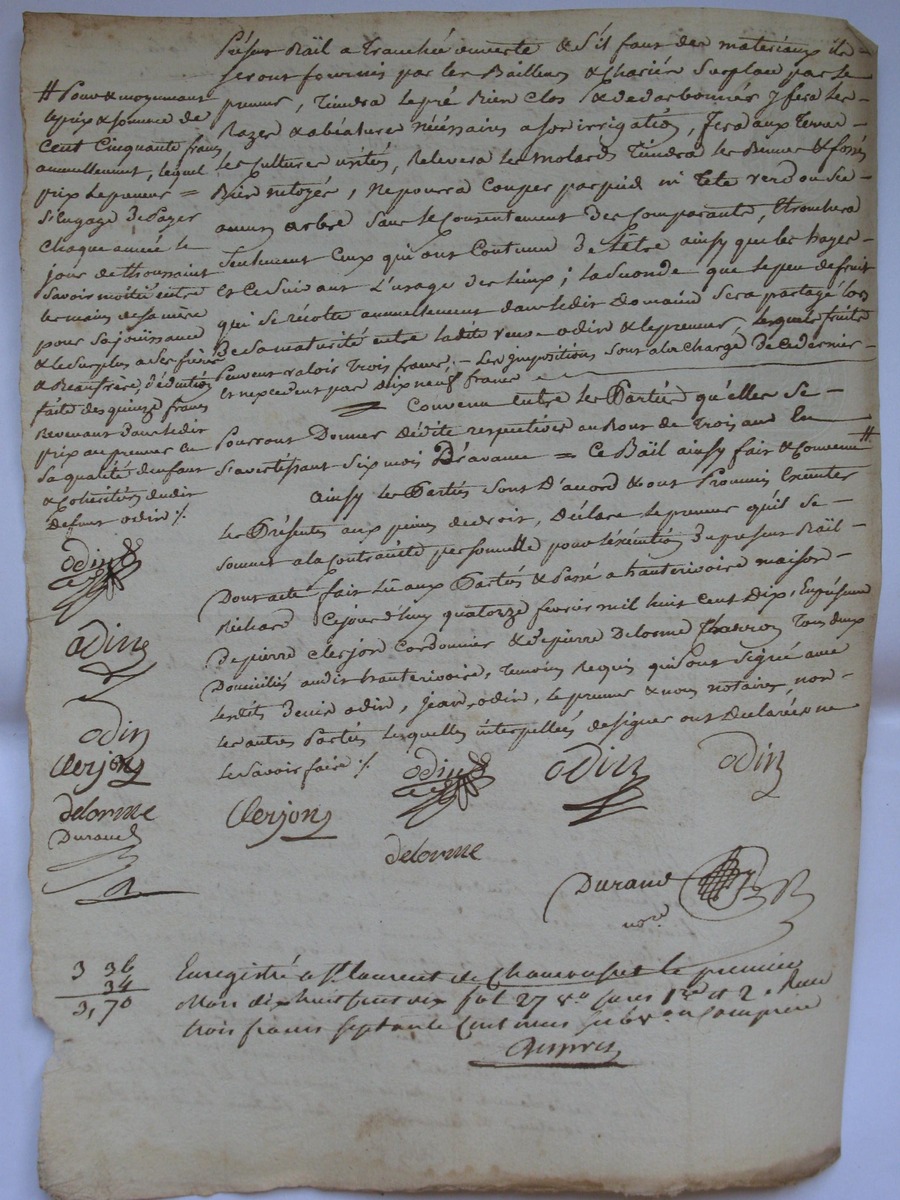 présent Bail a Tranchée ouverte & s'il faut des materiaux ils
seront fournis par les Bailleurs & chariés sur place par le
preneur, Tiendra le pré Bien clos & y fera les
Razes & abéatures nécessaires a son irrigation, fera aux terres
les cultures usités, Relevera les molards Tiendra les & fossés
Bien netoyés, ne poura couper par pied ni Tete verd ou sec
aucun arbre sans le Consentement des Comparants, Ebranchera
seulement Ceux qui ont Coutume de l'être ainsy que les hayes
et Ce suivant L'usage des lieux; la seconde que le peu de fruit
qui se récolte annuellement dans ledit Domaine sera partagé lors
de sa maturité entre ladite veuve odin & le preneur, lesquels fruits
peuvent valoir Trois francs; Les Impositions sont a la charge de ce dernier
et n'excedent pas dix neuf francs
= Convenu entre les Parties qu'elles se
pourront Donner Dédite respective au Bout de Trois ans En
s'avertissant six mois D'avance = Ce Bail ainsy fait & Convenu #
ainsy les Parties sont D'accord & ont Promis Exécuter
les Présentes aux peines de droit, Déclare le preneur qu'il se
soumet a la Contrainte personnelle pour l'exécution du present Bail
Dont acte fait Lu aux Parties & Passé a hauterivoire maison
Richard Cejourd'huy quatorze fevrier mil huit cent Dix, En présence
de pierre Clerjon Cordonnier & de pierre Delorme Tous deux
Domiciliés audit hauterivoire, Temoins Requis qui ont signé avec
lesdits Denis odin, Jean odin, le preneur & nous notaire, non
les autres Parties lesquelles interpellées de signer ont Déclarées ne
le savoir faire ./.
# Pour & moyennant
le prix & somme de
Cent Cinquante francs
annuellement, lequel
prix le preneur =
s'Engage De Payer
Chaque année le
jour de thoussaint
savoir moitié entre
les mains de sa mère
pour sa jouissance
& le surplus a ses frères
& Beaufrère, déduction
faite des quinze francs
Revenant dans ledit
prix au preneur En
sa qualité d'enfant
& Cohéritier dudit
defunt odin ./.
odin
odin
odin
Clerjon
delorme
Durand
Clerjon
odin
odin
odin
delorme
Durand
no.re
3 36
34
3,70
Enregistré a St laurent de Chamousset le premier
Mars dix huit cent dix fol 27 v.o cases 1.re et 2.e Reçu
trois francs septante centimes sub.on Comprise